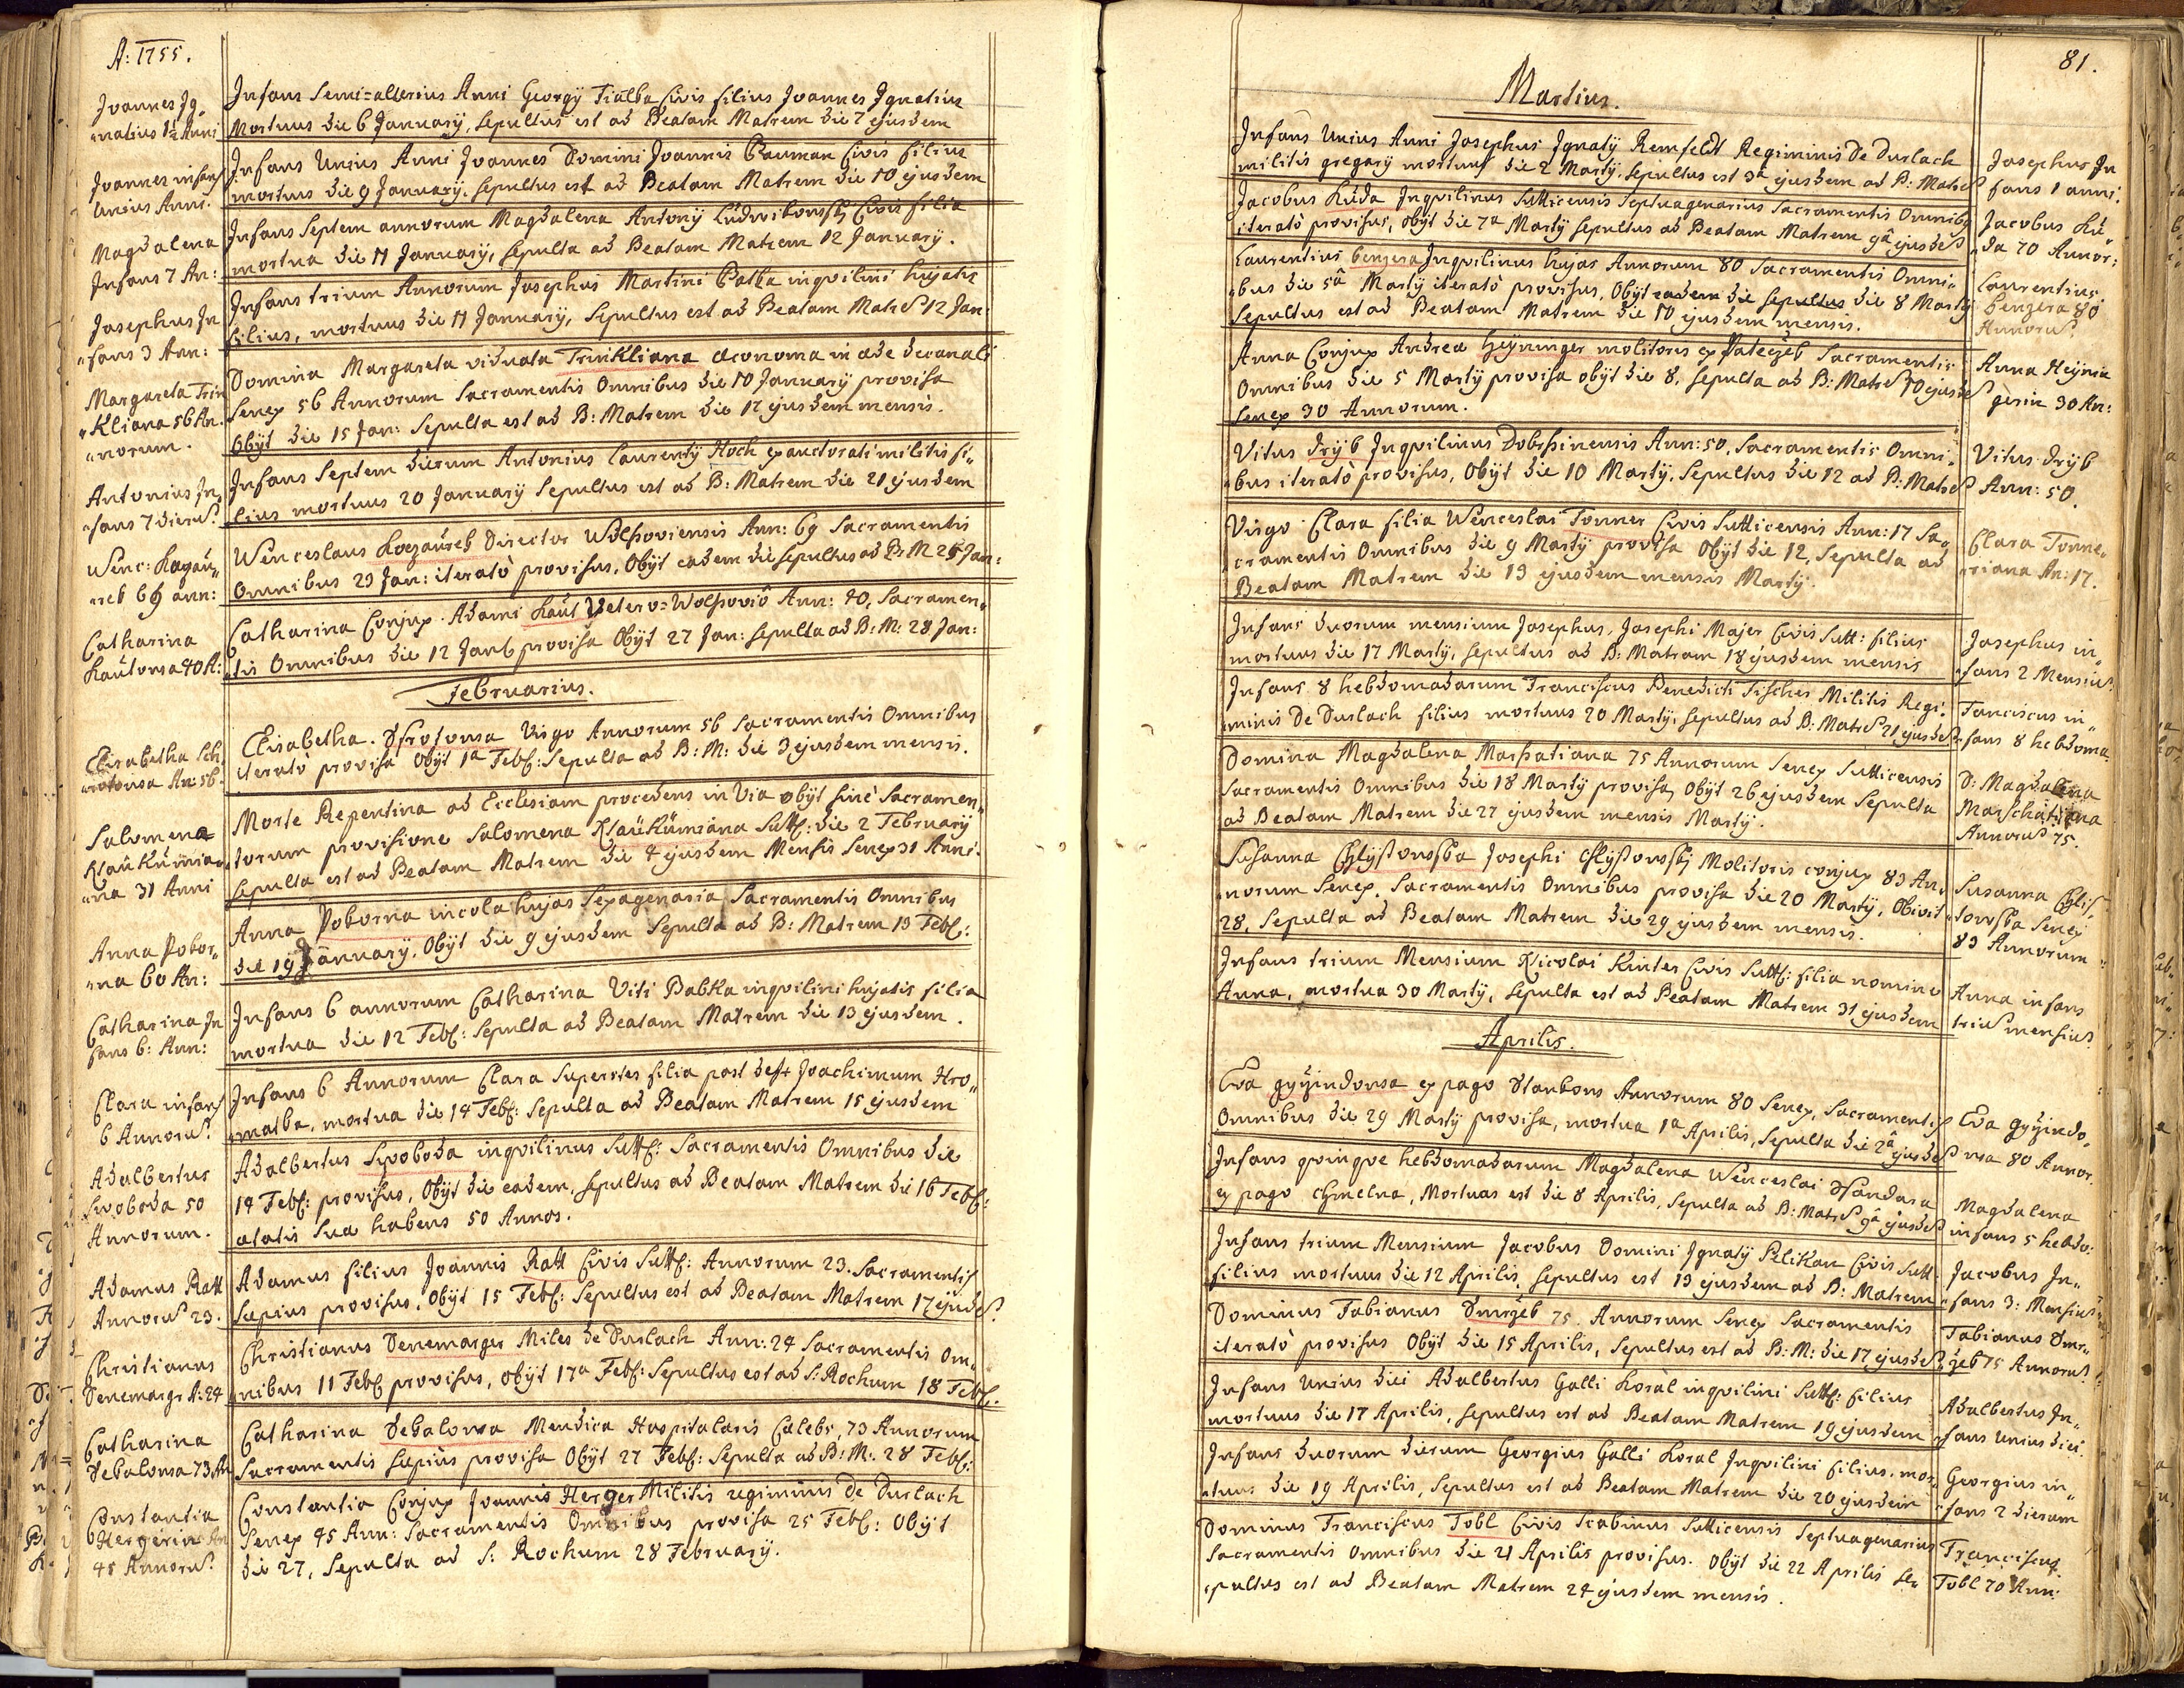 A: 1755.
Joannes Ig„
„natius 1½ Anni
Infans Semi=alterius Anni Georgÿ Fialka Civis filius Joannes Ignatius
Mortuus die 6 Januarÿ, sepultus est ad Beatam Matrem die 7 ejusdem
Joannes infans
Unius Anni.
Infans Unius Anni Joannes Domini Joannis Pauman Civis filius
mortuus die 9 Januarÿ. sepultus est ad Beatam Matrem die 10 ejusdem
Magdalena
Infans 7 An:
Infans Septem annorum Magdalena Antonÿ Civis filia
mortua die 11 Januarÿ, sepulta ad Beatam Matrem 12 Januarÿ.
Josephus In
„fans 3 Ann:
Infans trium Annorum Josephus Martini inqvilini hujatis
filius, mortuus die 11 Januarÿ, Sepultus est ad Beatam Matrē 12 Jan:
Margareta Trin
„Kliana 56 An„
„norum.
Domina Margareta viduata TrinKliana oeconoma in aede decanali
Senex 56 Annorum Sacramentis Omnibus die 10 Januarÿ provisa
Obÿt die 15 Jan: Sepulta est ad B: Matrem die 17 ejusdem mensis.
Antonius In„
„fans 7 dierū.
Infans Septem dierum Antonius Laurentÿ Hoch exauctorati militis fi„
„lius mortuus 20 Januarÿ Sepultus est ad B: Matrem die 21 ejusdem
Wenc: Kozau„
„rek 69 ann:
Wenceslaus Kozaurek Director Ann: 69 Sacramentis
Omnibus 23 Jan: iteratò provisus, Obÿt eadem die sepultus ad B: M 25 Jan:
Catharina
Kautowa 40 A:
Catharina Conjux Adami Kaut Ann: 40, Sacramen„
„tis Omnibus die 12 provisa Obÿt 27 Jan: sepulta ad B: M: 28 Jan:
Februarius.
Elisabetha
An: 56.
Elisabetha Virgo Annorum 56 Sacramentis Omnibus
iteratò provisa Obÿt 1a Feb: Sepulta ad B: M: die 3 ejusdem mensis.
Salomena
Klaukumia„
„na 31 Anni
Morte Repentina ad Ecclesiam procedens in Via obÿt sine Sacramen„
torum provisione Salomena Klaukumiana Sutt: die 2 Februarÿ
sepulta est ad Beatam Matrem die 4 ejusdem Mensis Senex 31 Anni
Anna Pobor„
„na 60 An:
Anna Poborna incola hujas Sexagenaria Sacramentis Omnibus
die 19 Januarÿ. Obÿt die 9 ejusdem Sepulta ad B: Matrem 13 Feb:
Catharina In
fans 6: Ann:
Infans 6 annorum Catharina Viti BabKa inqvilini hujatis filia
mortua die 12 Feb: Sepulta ad Beatam Matrem die 13 ejusdem.
Clara infans
6 Annorū.
Infans 6 Annorum Clara Superstes filia post Joachimum Hro„
„matka, mortua die 14 Feb: Sepulta ad Beatam Matrem 15 ejusdem
Adalbertus
Swoboda 50
Annorum.
Adalbertus Swoboda inqvilinus Sutt: Sacramentis Omnibus die
14 Feb: provisus, Obÿt die eadem, sepultus ad Beatam Matrem die 16 Feb:
aetatis Suae habens 50 Annos.
Adamus Ratt
Annorū 23.
Adamus filius Joannis Ratt Civis Sutt: Annorum 23. Sacramentis
saepius provisus, Obÿt 15 Feb: Sepultus est ad Beatam Matrem 17 ejusdē.
Christianus
Denemargr A: 24
Christianus Denemarger Miles de Durlach Ann: 24 Sacramentis Om„
„nibus 11 Feb provisus, obÿt 17a Feb: Sepultus est ad S: Rochum 18 Feb.
Catharina
73 An
Catharina Mendica Hospitalaris Caelebs, 73 Annorum
Sacramentis saepius provisa Obÿt 27 Feb: Sepulta ad B: M: 28 Feb:
Constantia
Hergerin An
45 Annorū.
Constantia Conjux Joannis Herger Militis regiminis de Durlach
Senex 45 Ann: Sacramentis Omnibus provisa 25 Feb: Obÿt
die 27, Sepulta ad S: Rochum 28 Februarÿ.
81.
Martius.
Infans Unius Anni Josephus Ignatÿ Remfeldt Regiminis de Durlach
militis gregarÿ mortuus die 2 Martÿ, sepultus est 3a ejusdem ad B: Matrē
Josephus In
fans 1 anni.
Jacobus Kuda Inqvilinus Sutticensis Septuagenarius Sacramentis Omnibus
iteratò provisus, obÿt die 7a Martÿ sepultus ad Beatam Matrem 9â ejusdē
Jacobus Ku„
„da 70 Annor:
Laurentius benzera Inqvilinus hujas Annorum 80 Sacramentis Omni„
„bus die 5â Martÿ iteratò provisus, Obÿt eadem die sepultus die 8 Martÿ
Sepultus est ad Beatam Matrem die 10 ejusdem mensis.
Laurentius
benzera 80
Annorū.
Anna Conjux Andreae Heÿninger molitoris ex Sacramentis
Omnibus die 5 Martÿ provisa obÿt die 8, sepulta ad B: Matrē 10 ejusdē
Senex 30 Annorum.
Anna Heÿnin
gerin 30 An:
Vitus Drÿb Inqvilinus Ann: 50, Sacramentis Omni„
„bus iteratò provisus, Obÿt die 10 Martÿ, Sepultus die 12 ad B: Matrē
Vitus Drÿb
Ann: 50.
Virgo Clara filia Wenceslai Tonner Civis Sutticensis Ann: 17 Sa„
„cramentis Omnibus die 9 Martÿ provisa Obÿt die 12, Sepulta ad
Beatam Matrem die 13 ejusdem mensis Martÿ.
Clara Tonne„
„riana An: 17.
Infans duorum mensium Josephus, Josephi Majer Civis Sutt: filius
mortuus die 17 Martÿ, sepultus ad B: Matram 18 ejusdem mensis
Josephus in„
„fans 2 Mensiū.
Infans 8 hebdomadarum Franciscus Benedicti Fischer Militis Regi„
„minis de Durlach filius mortuus 20 Martÿ, sepultus ad B: Matrē 21 ejusdē
Fanciscus in„
„fans 8 hebdoma
Domina Magdalena 75 Annorum Senex Sutticensis
Sacramentis Omnibus die 18 Martÿ provisa, Obÿt 26 ejusdem Sepulta
ad Beatam Matrem die 27 ejusdem mensis Martÿ.
D: Magdalena
Marschatiana
Annorū 75.
Susanna Josephi Molitoris conjux 83 An„
„norum Senex, Sacramentis Omnibus provisa die 20 Martÿ, Obivit
28, Sepulta ad Beatam Matrem die 29 ejusdem mensis.
Susanna
Senex
83 Annorum
Infans trium Mensium Nicolai Kinter Civis Sutt: filia nomine
Anna, mortua 30 Martÿ, sepulta est ad Beatam Matrem 31 ejusdem
Anna infans
triū mensiū
Aprilis.
Eva ex pago Annorum 80 Senex, Sacramentis
Omnibus die 29 Martÿ provisa, mortua 1a Aprilis, Sepulta die 2â ejusdē
Eva
80 Annor.
Infans qvinqve hebdomadarum Magdalena Wenceslai
ex pago Mortuas est die 8 Aprilis, Sepulta ad B: Matrē 9â ejusdē
Magdalena
infans 5 hebdo:
Infans trium Mensium Jacobus Domini Ignatÿ PeliKan Civis Sutt:
filius mortuus die 12 Aprilis, sepultus est 13 ejusdem ad B: Matrem
Jacobus In„
„fans 3: Mensiū
Dominus Fabianus 75. Annorum Senex Sacramentis
iteratò provisus Obÿt die 15 Aprilis, Sepultus est ad B: M: die 17 ejusdē
Fabianus
75 Annorū.
Infans Unius diei Adalbertus Galli Koral inqvilini Sutt: filius
mortuus die 17 Aprilis, sepultus est ad Beatam Matrem 19 ejusdem
Adalbertus In„
„fans Unius diei.
Infans duorum dierum Georgius Galli Koral Inqvilini filius, mor„
„tuus die 19 Aprilis, Sepultus est ad Beatam Matrem die 20 ejusdem
Georgius in„
„fans 2 dierum
Dominus Franciscus Tobl Civis Scabinus Sutticensis Septuagenarius
Sacramentis Omnibus die 21 Aprilis provisus. Obÿt die 22 Aprilis se„
„pultus est ad Beatam Matrem 24 ejusdem mensis.
Franciscus
Tobl 70 Ann: